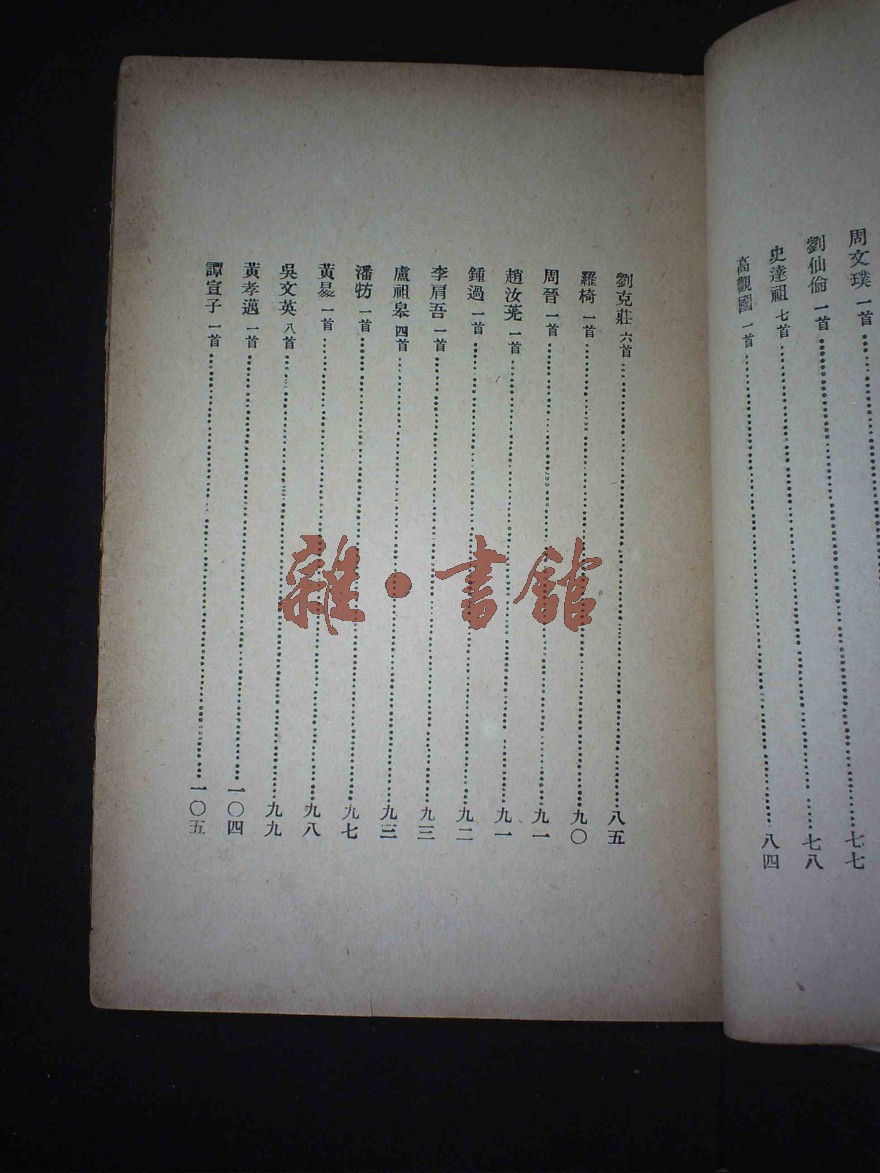 周文璞 一首……七七
劉仙倫 一首……七八
史達祖 七首……八四
高觀國 一首
劉克莊 六首……八五
羅椅 一首……九〇
周晉 一首……九一
趙汝茪 一首……九一
鍾過 一首……九二
李肩吾 一首……九三
盧祖皋 四首……九三
潘牥 一首……九七
黃昇 一首……九八
吳文英 八首……九九
黃孝邁 一首……一〇四
譚宣子 一首……一〇五
雜·書館